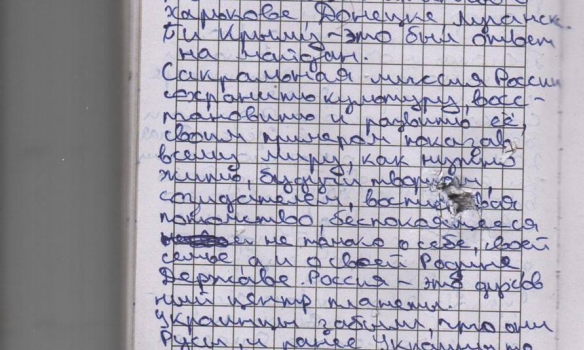 Харькове, Донецке, Луганск
е и Крыму - это был ответ
на майдан.
Сакральная миссия России
сохранить культуру, восс-
тановить и развить её,
своим примером показав
всему миру, как нужно
жить, будучи творцом,
созидателем, воспитывая
потомство, беспокоящееся
не только о себе, своей
семье а и о своей Родине
Державе. Россия - это духов
ный центр планеты.
Украинцы забыли, что они
Русы, и ранее Украины то